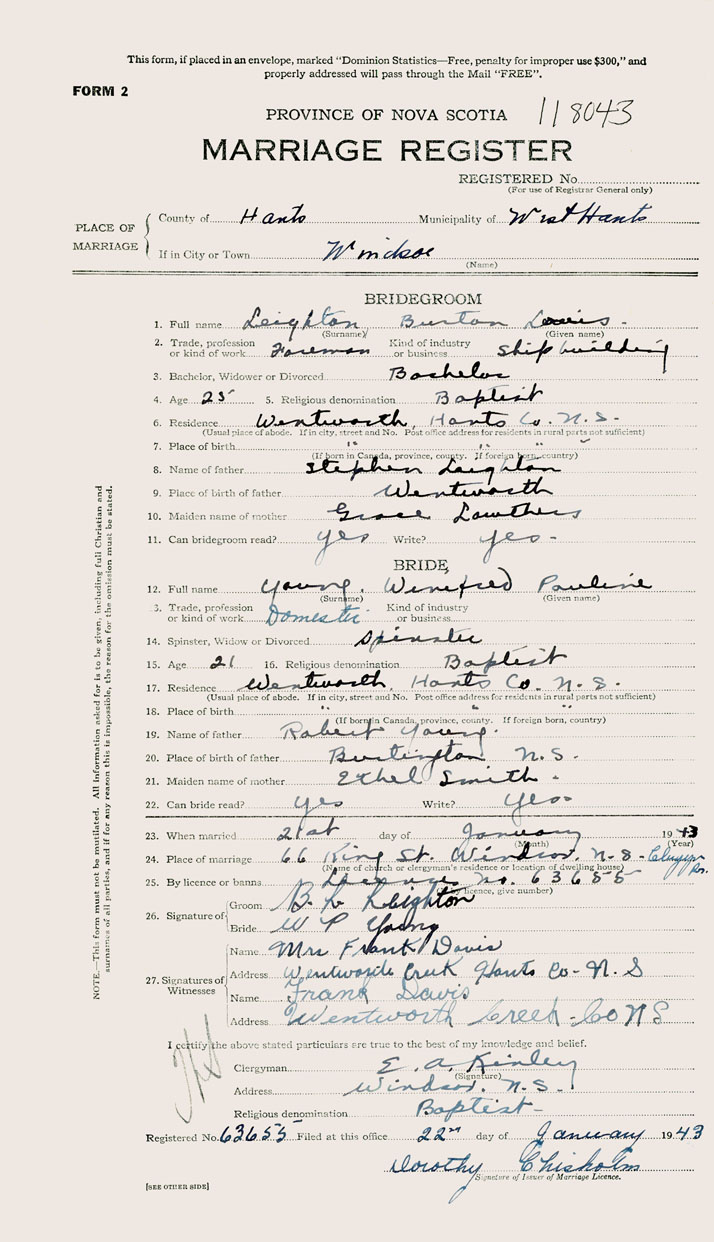 This form, if placed in an envelope, marked "Dominion Statistics—Free, penalty for improper use $300," and
properly addressed will pass through the Mail "FREE".
FORM 2
PROVINCE OF NOVA SCOTIA 118043
MARRIAGE REGISTER
REGISTERED No.
(For use of Registrar General only)
PLACE OF MARRIAGE
County of Hants Municipality of West Hants
If in City or Town Windsor
(Name)
BRIDEGROOM
1. Full name Leighton Burton Louis -
(Surname) (Given name)
2. Trade, profession or kind of work Foreman Kind of industry or business Shipbuilding
3. Bachelor, Widower or Divorced Bachelor
4. Age 25 5. Religious denomination Baptist
6. Residence Wentworth, Hants Co. N.S.
(Usual place of abode. If in city, street and No. Post office address for residents in rural parts not sufficient)
7. Place of birth " " "
(If born in Canada, province, county. If foreign born, country)
8. Name of father Stephen Leighton
9. Place of birth of father Wentworth
10. Maiden name of mother Grace Lowthers
11. Can bridegroom read? yes Write? yes -
BRIDE
12. Full name Young, Winifred Pauline
(Surname) (Given name)
13. Trade, profession or kind of work Domestic Kind of industry or business
14. Spinster, Widow or Divorced Spinster
15. Age 21 16. Religious denomination Baptist
17. Residence Wentworth, Hants Co. N.S.
(Usual place of abode. If in city, street and No. Post office address for residents in rural parts not sufficient)
18. Place of birth " " "
(If born in Canada, province, county. If foreign born, country)
19. Name of father Robert Young.
20. Place of birth of father Burlington N.S.
21. Maiden name of mother Ethel Smith -
22. Can bride read? yes Write? yes -
23. When married 21st day of January 1943
(Month) (Year)
24. Place of marriage 66 King St. Windsor, N.S.
(Name of church or clergyman's residence or location of dwelling house)
25. By licence or banns License No. 63655
(If by licence, give number)
26. Signature of
Groom B. L. Leighton
Bride W P Young
27. Signatures of Witnesses
Name Mrs Frank Davis
Address Wentworth Creek Hants Co - N.S
Name Frank Davis
Address Wentworth Creek - Co N S
I certify the above stated particulars are true to the best of my knowledge and belief.
Clergyman E. A. Kinley
(Signature)
Address Windsor, N.S.
Religious denomination Baptist -
Registered No. 63655 Filed at this office 22nd day of January 1943
Dorothy Chisholm
Signature of Issuer of Marriage Licence.
[SEE OTHER SIDE]
NOTE.—This form must not be mutilated. All information asked for is to be given, including full Christian and
surnames of all parties, and if for any reason this is impossible, the reason for the omission must be stated.